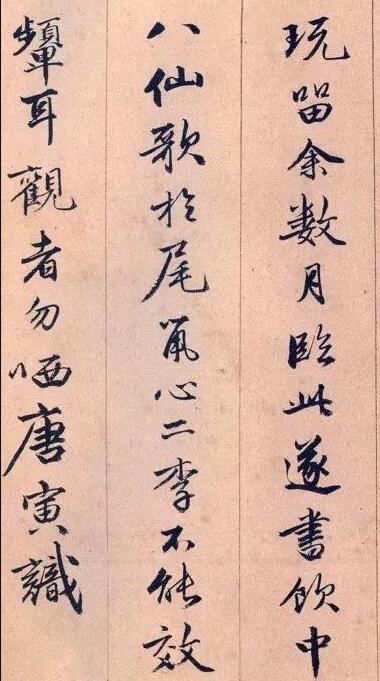 玩畱余数月臨此遂書飲中
八仙歌於尾第心二李不能效
顰耳觀者勿哂唐寅識